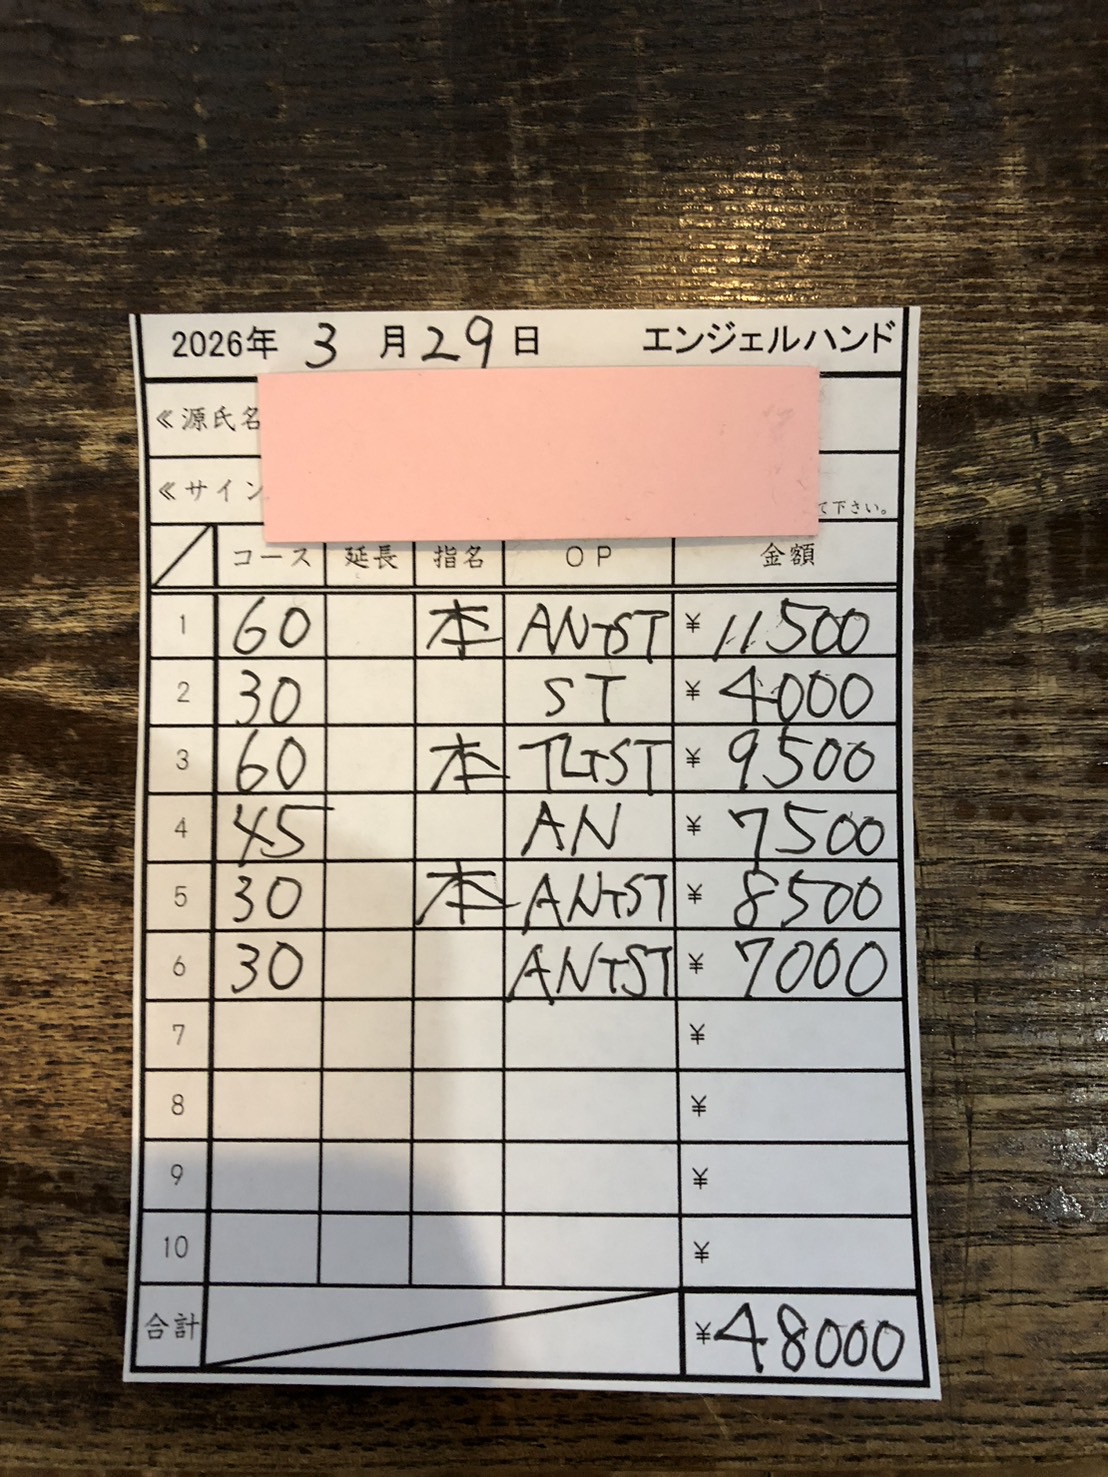 2026年 3 月 29 日 エンジェルハンド
≪源氏名
≪サイン
て下さい。
コース 延長 指名 OP 金額
1 60 本 AN+ST ¥11500
2 30 ST ¥4000
3 60 本 TL+ST ¥9500
4 45 AN ¥7500
5 30 本 AN+ST ¥8500
6 30 AN+ST ¥7000
7 ¥
8 ¥
9 ¥
10 ¥
合計 ¥48000